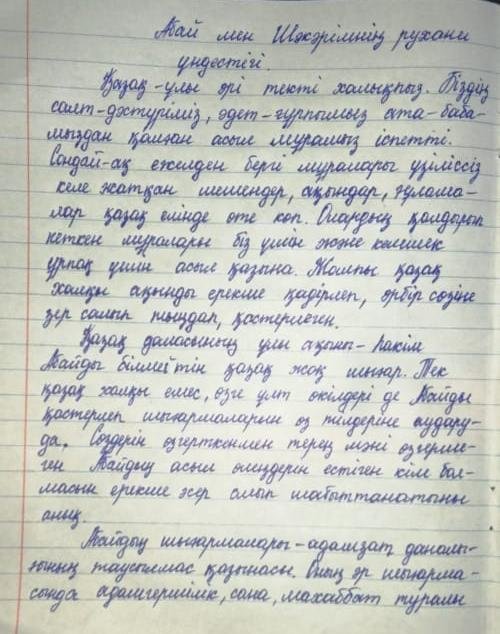 Абай мен Шәкәрімнің рухани
үндестігі.
Қазақ-ұлы әрі текті халықпыз. Біздің
салт-дәстүріміз, әдет-ғұрпымыз ата-баба-
мыздан қалған асыл мұрамыз іспетті.
Сондай-ақ ежелден бері мұралары үзіліссіз
келе жатқан шешендер, ақындар, ғұлама-
лар қазақ елінде өте көп. Олардың қалдырып
кеткен мұралары біз үшін және келешек
ұрпақ үшін асыл қазына. Жалпы қазақ
халқы ақынды ерекше қадірлеп, әрбір сөзіне
зер салып тыңдап, қастерлеген.
Қазақ даласының ұлы ақыны-Һакім
Абайды білмейтін қазақ жоқ шығар. Тек
қазақ халқы емес, өзге ұлт өкілдері де Абайды
қастерлеп шығармаларын өз тілдеріне аудару-
да. Сөздерін өзгерткенмен терең мәні өзгерме-
ген Абайдың асыл өлеңдерін естіген кім бол-
масын ерекше әсер алып шабыттанатыны
анық.
Абайдың шығармалары-адамзат даналы-
ғының таусылмас қазынасы. Оның әр шығарма-
сында адамгершілік, сана, махаббат туралы